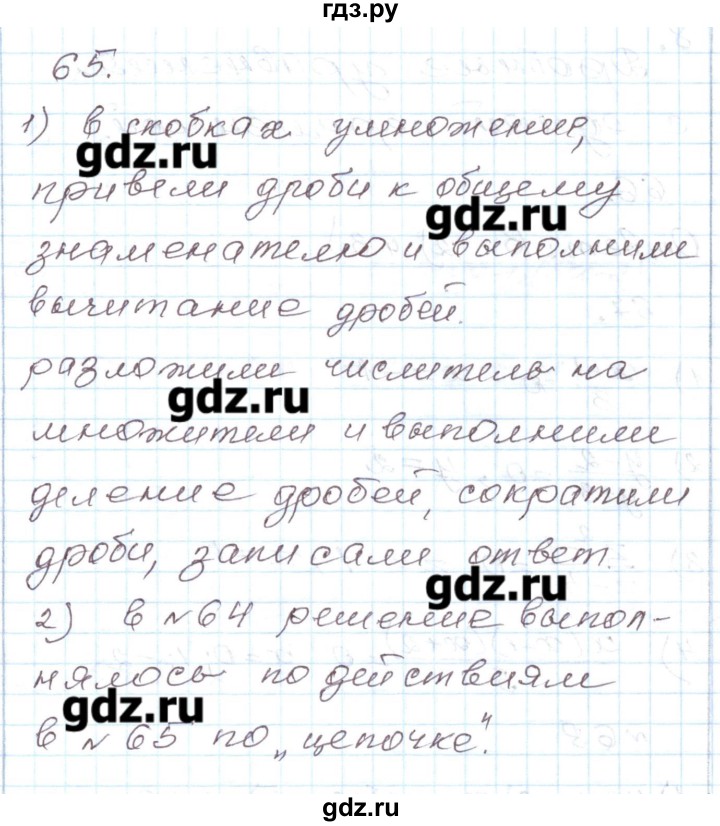 гдз.ру
65.
1) в скобках умножение,
gdz.ru
привели дроби к общему
gdz.ru
знаменателю и выполнили
вычитание дробей.
разложили числитель на
gdz.ru
множители и выполнили
деление дробей, сократили
дроби, записали ответ.
gdz.ru
2) в №64 решение выпол-
нялось по действиям
gdz.ru
в №65 по „цепочке".
gdz.ru